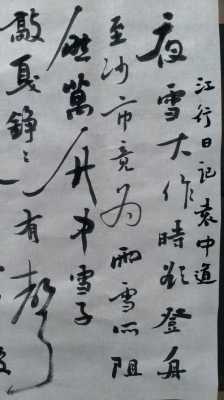 江行日記袁中道
夜雪大作時欲登舟
至沙市竟为雨雪所阻
然萬竹中雪子
敲戛錚々有聲